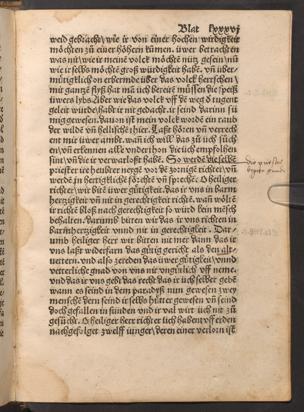 Blat lxxxvj
weid gebracht/ wie ir von einer hochen wirdigkeit
möchten zů einer höhern kumen. iwer betrachten
was nit/ wie ir meine volck möcht nutz gesein/ nū
wie ir selbs möchte groß wirdigkeit habē. vn̄ über-
mütigklich on erbermde über das volck herrschen/
mit gantzē flyß hat mā üch bereit müssen die speiß
iuwers lybs. Aber wie das volck vff dē weg d tugent
geleit würde/ habt ir nit gedacht. ir seind darinn sü
mig gewesen. dauon ist mein volck wordē ein raub
der wilde vn̄ hellischē thier. Last hören vn̄ verrech
ent mir iuwer ampt. wañ ich will das zů üch süch
en/ vn̄ erkennen alle vnderthon die üch empfolhen
sint/ vn̄ die ir verwarloßt habē. So werdē die selbē
priester ire heubter neigē vor dē zornigē richter/ vn̄
werdē in fertigklichē förchtē vn̄ sprechē. O heiliger
richter/ wir bitē iwer gütigkeit. das ir vns in barm
hertzigkeit vn̄ nit in gerechtigkeit richtē. wañ wölte
ir richtē bloß nach gerechtigkeit so würd kein mēsch
behalten. darumb bitten wir das ir vns richten in
barmhertzigkeit vnnd nit in gerechtigkeit. Dar-
umb heiliger herr wir bitten nit mer dann das ir
vns laßt widerfarn das gütig gericht als den alt-
uetern. vnd also zereden das iuwer gütigkeit/ vnnd
vetterliche gnad von vns nit vngütlich vff neme.
vnd das ir vns gebē das recht das ir üch selber gebē
wann es seind in dem paradyß nun gewesen zwey
menschē dern seind ir selbs hütter gewesen vn̄ seind
doch gefallen in sünden vnd ir val wirt üch nit zů
gesücht. O heiliger herr richter üch haben vff erden
nachgefolget zwelff iunger/ deren einer verlorn ist